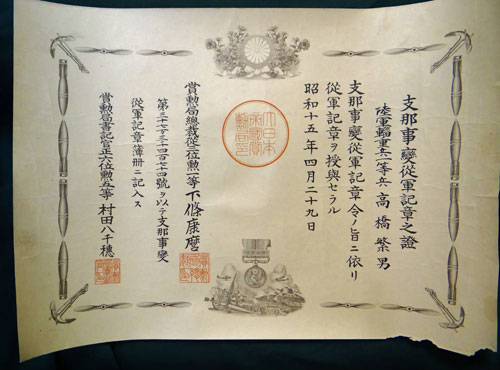 支那事變從軍記章之證
陸軍輜重兵一等兵 高橋繁男
支那事變從軍記章令ノ旨ニ依リ
從軍記章ヲ授與セラル
昭和十五年四月二十九日
大日本帝國賞勳局印
賞勳局總裁從三位勳一等下條康麿
第三十七万三千四百七十四號ヲ以テ支那事變
從軍記章簿册ニ記入ス
賞勳局書記官正六位勳五等村田八千穗